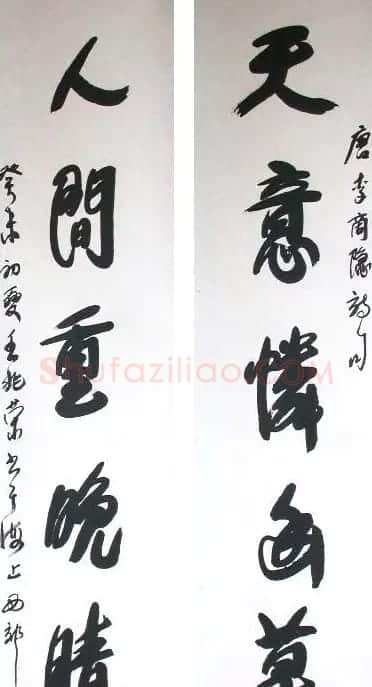 天意憐幽草
唐李商隱詩句
人間重晚晴
癸未初夏王兆荣书于海上西郊
Shufaziliao.COM